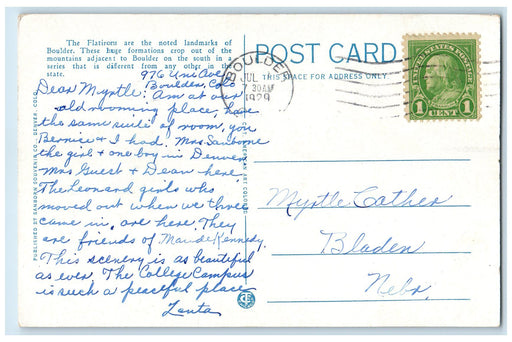 The Flatirons are the noted landmarks of
Boulder. These huge formations crop out of the
mountains adjacent to Boulder on the south in a
series that is different from any other in the
state.
976 Uni Ave
Boulder, Colo
Dear Myrtle: Am at our
old rooming place, have
the same suite of room, you
Bernice & I had. Mrs Sanborne
the girl & one boy in Denver
Mrs Guest & Dean here.
The Leonard girls who
moved out when we three
came in, are here. They
are friends of Maude Kennedy.
This scenery is as beautiful
as ever. The College Campus
is such a peaceful place
PUBLISHED BY SANBORN SOUVENIR CO., DENVER, COLO.
POST CARD
THIS SPACE FOR ADDRESS ONLY
BOULDER
JUL
7 30AM
1929
UNITED STATES POSTAGE
FRANKLIN
1 1
CENT
Myrtle Cather
Bladen
Nebr.